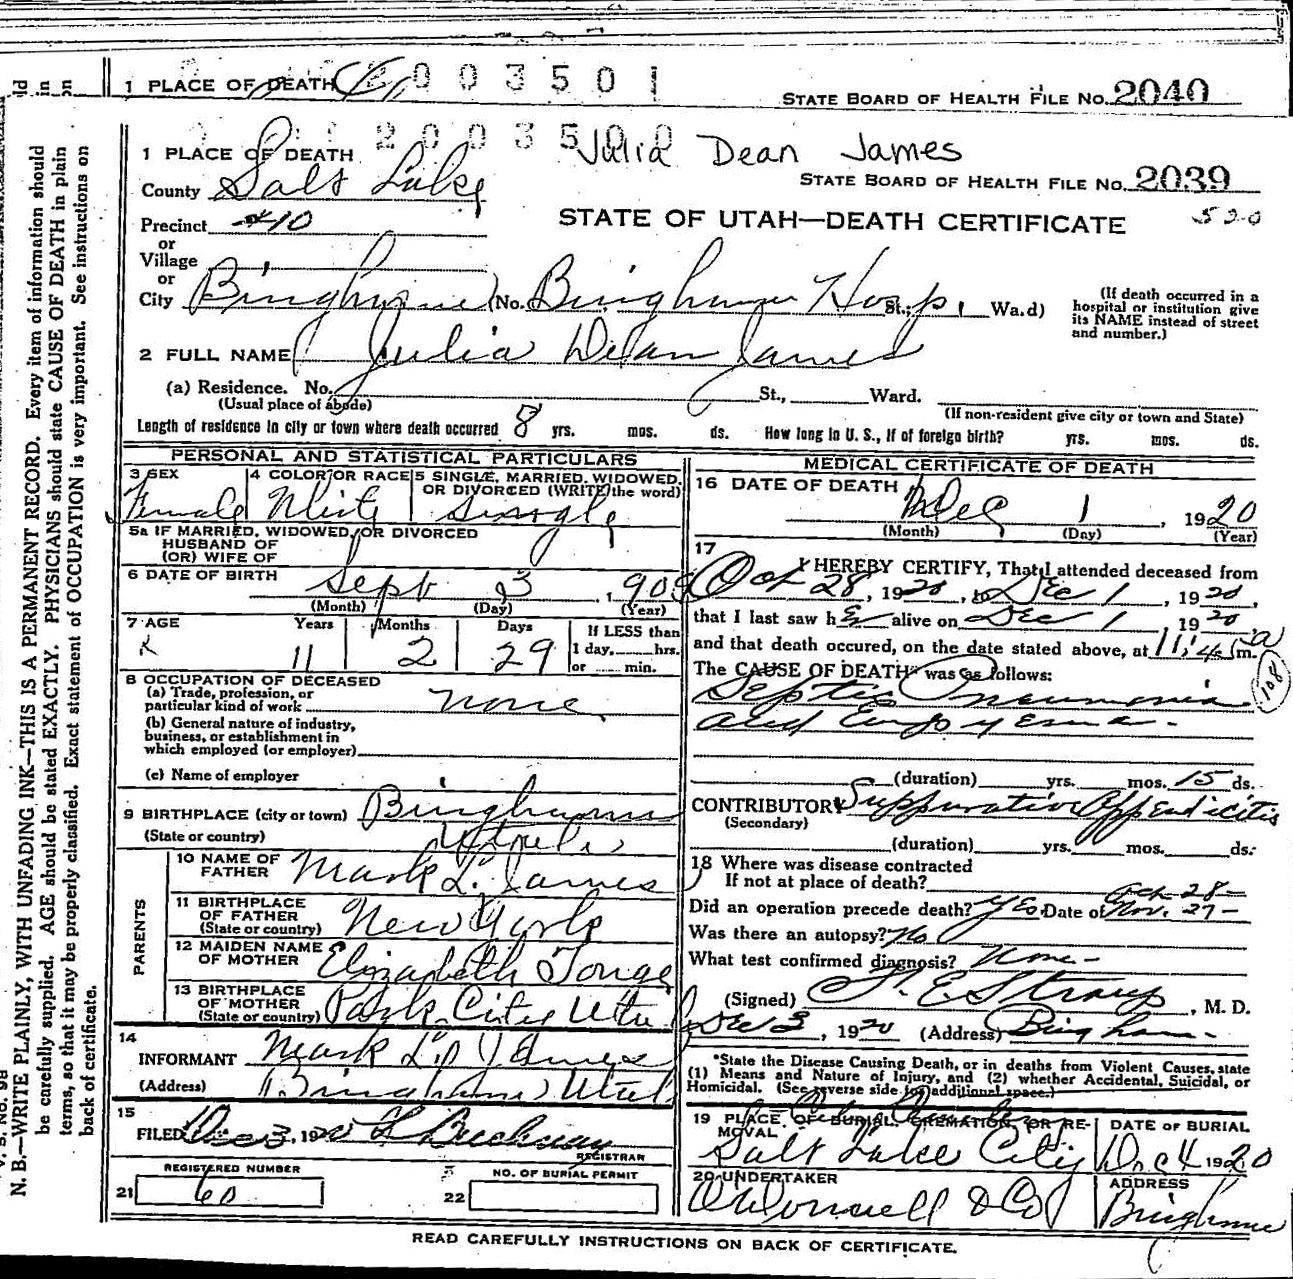 1 PLACE OF DEATH 2003501
STATE BOARD OF HEALTH FILE NO. 2040
2003500
Julia Dean James
1 PLACE OF DEATH
STATE BOARD OF HEALTH FILE NO. 2039
County Salt Lake
520
Precinct #10
STATE OF UTAH—DEATH CERTIFICATE
or
Village
or
City Bingham (No. Bingham Hosp. St.; Ward)
(If death occurred in a hospital or institution give its NAME instead of street and number.)
2 FULL NAME Julia Dean James
(a) Residence. No. St., Ward.
(Usual place of abode) (If non-resident give city or town and State)
Length of residence in city or town where death occurred 8 yrs. mos. ds. How long in U. S., if of foreign birth? yrs. mos. ds.
PERSONAL AND STATISTICAL PARTICULARS
3 SEX Female
4 COLOR OR RACE White
5 SINGLE, MARRIED, WIDOWED, OR DIVORCED (WRITE the word) Single
5a IF MARRIED, WIDOWED, OR DIVORCED
HUSBAND OF
(OR) WIFE OF
6 DATE OF BIRTH Sept 3, 1909
(Month) (Day) (Year)
7 AGE Years Months Days If LESS than
11 2 29 1 day, hrs.
or min.
8 OCCUPATION OF DECEASED
(a) Trade, profession, or
particular kind of work none
(b) General nature of industry,
business, or establishment in
which employed (or employer)
(c) Name of employer
9 BIRTHPLACE (city or town) Bingham
(State or country) Utah
PARENTS
10 NAME OF FATHER Mark L. James
11 BIRTHPLACE OF FATHER (State or country) New York
12 MAIDEN NAME OF MOTHER Elizabeth Tonge
13 BIRTHPLACE OF MOTHER (State or country) Park City Utah
14
INFORMANT Mark L. James
(Address) Bingham Utah
15
FILED Dec 3, 1920
REGISTRAR
REGISTERED NUMBER
21 60
NO. OF BURIAL PERMIT
22
MEDICAL CERTIFICATE OF DEATH
16 DATE OF DEATH Dec 1, 1920
(Month) (Day) (Year)
17
I HEREBY CERTIFY, That I attended deceased from
Oct 28, 1920, to Dec 1, 1920,
that I last saw her alive on Dec 1 1920,
and that death occured, on the date stated above, at 11:45 a m.
The CAUSE OF DEATH* was as follows:
Septic Pneumonia
and Empyema.
108
(duration) yrs. mos. 15 ds.
CONTRIBUTORY Suppurative Appendicitis
(Secondary)
(duration) yrs. mos. ds.
18 Where was disease contracted
If not at place of death?
Oct-28-
Did an operation precede death? Yes Date of Nov. 27-
Was there an autopsy? No
What test confirmed diagnosis? None-
(Signed) F. E. Straup, M. D.
Dec 3, 1920 (Address) Bingham-
*State the Disease Causing Death, or in deaths from Violent Causes, state
(1) Means and Nature of Injury, and (2) whether Accidental, Suicidal, or
Homicidal. (See reverse side for additional space.)
19 PLACE OF BURIAL, CREMATION, OR REMOVAL
Salt Lake City
DATE OF BURIAL
Dec 4 1920
20 UNDERTAKER
O'Donnell & Co
ADDRESS
Bingham
READ CAREFULLY INSTRUCTIONS ON BACK OF CERTIFICATE.
N. B.—WRITE PLAINLY, WITH UNFADING INK—THIS IS A PERMANENT RECORD. Every item of information should
be carefully supplied. AGE should be stated EXACTLY. PHYSICIANS should state CAUSE OF DEATH in plain
terms, so that it may be properly classified. Exact statement of OCCUPATION is very important. See instructions on
back of certificate.